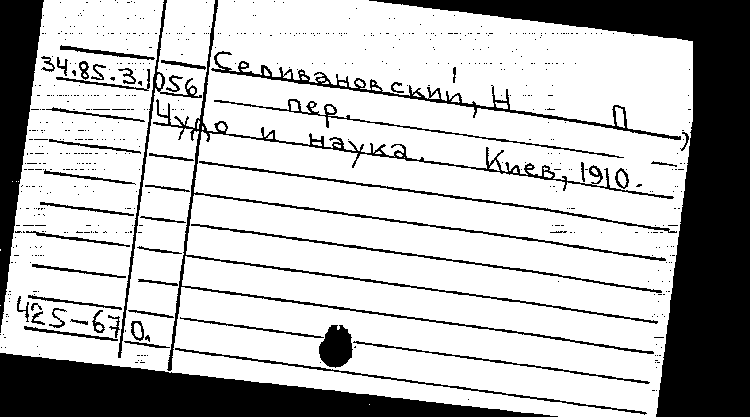 34.85.3.1056
Селивановский, Н П
пер.
Чудо и наука. Киев, 1910.
425-670.